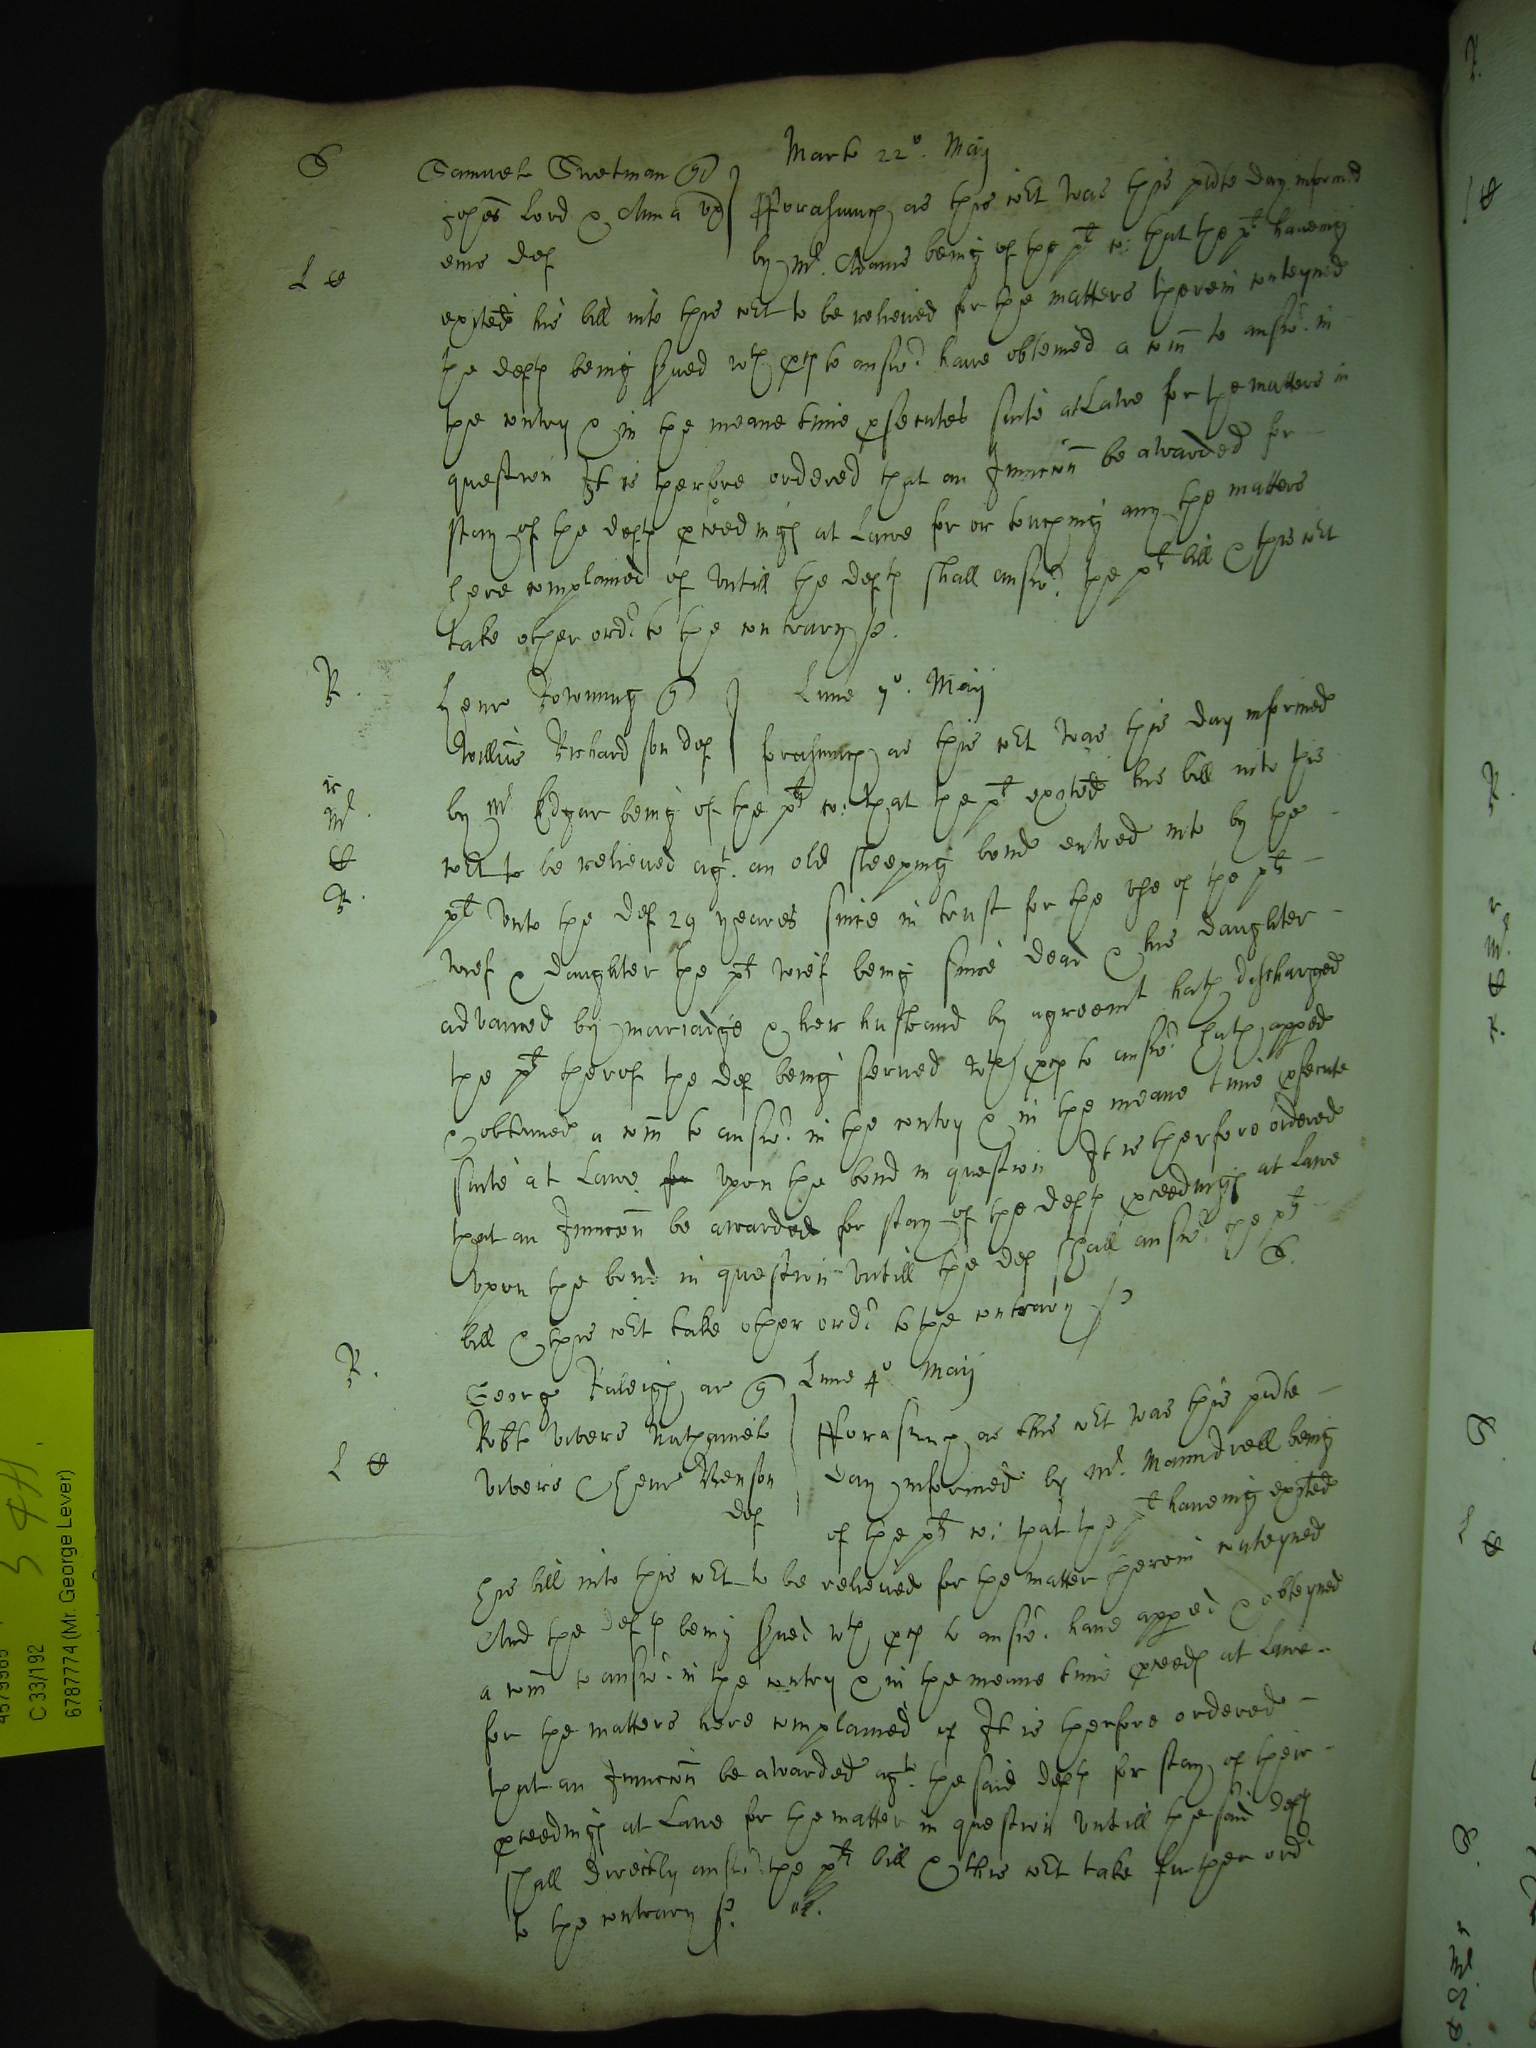 S
Samuele Swetman q
Marte 22°. Maij
Johes Lord & Anna ux
eius def
Fforasmuch as this cort was this pnte day informed
L &
by Mr. Adams being of the plt co: that the plt haveing
exhited his bill into this cort to be relieued for the matters therein conteyned
the defts being serued wth proces to answr have obteined a comn to answr. in
the contry & in the meane time psecutes suite at Lawe for the matters in
question It is therfore ordered that an Iniuncon be awarded for
stay of the defts pceedings at Lawe for or touching any the matters
here complained of Vntill the defts shall answr. the plts bill & this cort
take other ordr to the contrary
R.
Henr Downing q
Lune 7°. Maij
Willms Richardson def
forasmuch as this cort was this day informed
r
Mr.
&
R.
by Mr Edgar being of the plts co: that the plt exhited his bill into this
cort to be relieued agt. an old sleeping bond entred into by the
plt Vnto the def 29 yeares since in trust for the vse of the plts
wief & daughter the plts wief being since dead & his daughter
advanced by marriadge & her husband by agreemt hath discharged
the plt therof the def being serued wth proces to answr hath apped
& obtained a comn to answr. in the contry & in the meane time psecute
suite at Lawe for vpon the bond in question It is therfore ordered
that an Iniuncon be awarded for stay of the defts pceedings at Lawe
vpon the bond in question Vntill the def shall answr. the plts
bill & this cort take other ordr to the contrary
S.
R.
George Raleigh ar q
Lune 4° Maij
Robt Vivers Nathaniel
Fforasmuch as this cort was this pnte
L &
Vivers & Henr Benson
def
day informed by Mr. Maundrell being
of the plts co: that the plt haveing exhited
his bill into this cort to be relieued for the matter therein conteyned
And the defts being serued wth proces to answr. have apped & obteyned
a comn to answr. in the contry & in the meane time pceeds at Lawe
for the matters here complained of It is therfore ordered
that an Iniuncon be awarded agt. the said defts for stay of their
pceedings at Lawe for the matter in question Vntill the said defts
shall directly answr the plts bill & this cort take further ordr
to the contrary
C 33/192
6787774 (Mr. George Lever)